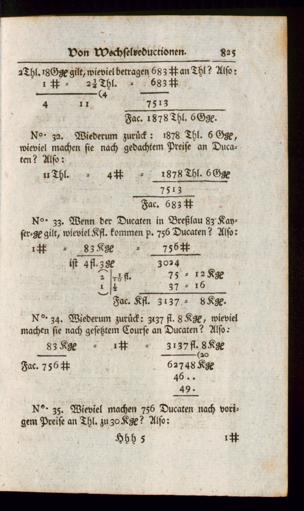 Von Wechselreductionen. 825
2Thl. 18Gge gilt, wieviel betragen 683 # an Thl? Also:
1 # = 2¾ Thl. = 683 #
(4
4 11 7513
Fac. 1878 Thl. 6 Gge.
No. 32. Wiederum zurück: 1878 Thl. 6 Gge,
wieviel machen sie nach gedachtem Preise an Duca-
ten? Also:
11 Thl. = 4 # = 1878 Thl. 6 Gge
7513
Fac. 683 #
No. 33. Wenn der Ducaten in Breßlau 83 Kay-
ser-ge gilt, wieviel Kfl. kommen p. 756 Ducaten? Also:
1 # = 83 Kge = 756 #
ist 4 fl. 3 ge 3024
2 | 1/10 fl. 75 = 12 Kge
1 | ½ 37 = 16
Fac. Kfl. 3137 = 8 Kge.
No. 34. Wiederum zurück: 3137 fl. 8 Kge, wieviel
machen sie nach gesetztem Course an Ducaten? Also:
83 Kge = 1 # = 3137 fl. 8 Kge
(20
Fac. 756 # 62748 Kge
46 . .
49 .
No. 35. Wieviel machen 756 Ducaten nach vori-
gem Preise an Thl. zu 30 Kge? Also:
Hhh 5 1 #